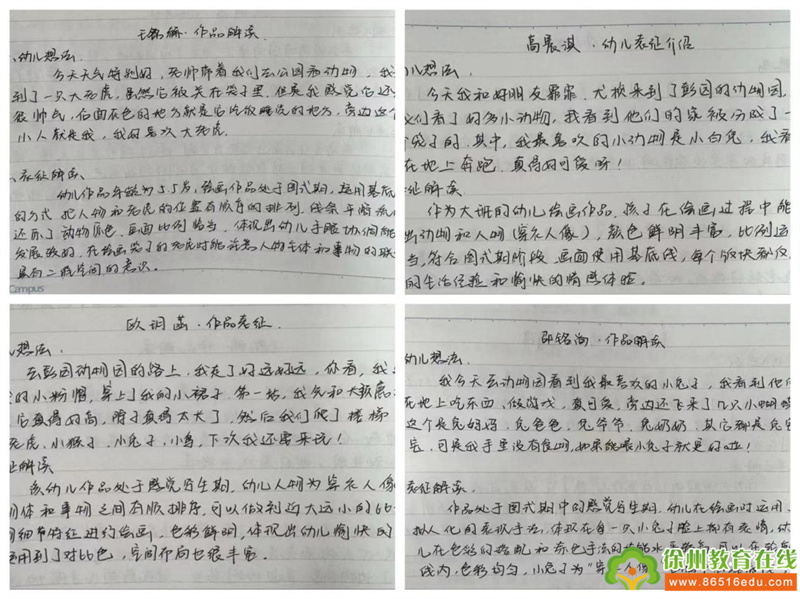 作品解读
幼儿想法
今天天气特别好，老师带着我们去公园看动物，我
到了一只大老虎，虽然它被关在笼子里，但是我感觉它还
很帅气，后面灰色的地方就是它吃饭睡觉的地方，旁边这个
小人就是我，我好喜欢大老虎。
表征解读
幼儿作品年龄为5.5岁，绘画作品处于图式期，运用基底
的方式把人物和老虎的位置有顺序的排列，线条平滑流
还原了动物原色，画面比例恰当，体现出幼儿手眼协调能
发展较好，在绘画笼子的老虎时能注意人物主体和事物的联
具有二维空间的意识。
Campus
高晨淇·幼儿表征介绍
幼儿想法
今天我和好朋友霏霏、尤换来到了彭园的动物园，
我们看了好多小动物，我看到他们的家被分成了一
个袋子的，其中，我最喜欢的小动物是小白兔，我看
在地上奔跑，真得好可爱呀！
表征解读
作为大班的幼儿绘画作品，孩子在绘画过程中能
出动物和人物（穿衣人像），颜色鲜明丰富，比例适
当，符合图式期阶段，画面使用基底线，每个版块都反
的生活经验和愉快的情感体验。
欧诩菡·作品表征
想法
去彭园动物园的路上，我走了好远好远，你看，我
的小粉帽，穿上我的小裙子，第一站，我先和大
它真得好高，脖子真得太大了，然后我们爬了楼梯
老虎、小猴子、小兔子、小鸟，下次我还要来玩！
表征解读
该幼儿作品处于感觉写生期，幼儿人物为穿衣人像
物体和事物之间有顺排序，可以做到近大远小的比
细节特征进行绘画，色彩鲜明，体现出幼儿愉快的
运用到了对比色，空间布局也很丰富。
邵铭洵·作品解读
幼儿想法
我今天去动物园看到我最喜欢的小兔子，我看到他们
在地上吃东西、做游戏，真可爱，旁边还飞来了几只小蝴蝶
这个是兔妈妈、兔爸爸、兔爷爷、兔奶奶，其它都是兔宝
宝，可是我手里没有食物，如果能喂小兔子就更好啦！
表征解读
作品处于图式期中的感觉写生期，幼儿在绘画时运用
拟人化的表现手法，体现在每一只小兔子脸上都有表情，幼
儿在色彩的搭配和
线内，色彩均匀，小兔子为“穿
徐州教育在线
www.86516edu.com